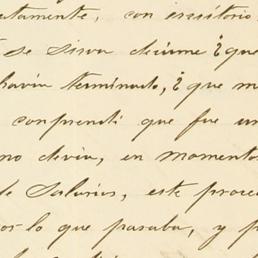 tamente, con escritorio
se sirva decirme ¿que
havia terminado, ¿que m
comprendi que fue un
no diria, en momentos
de Salarios, este proce
por lo que pasaba, y p